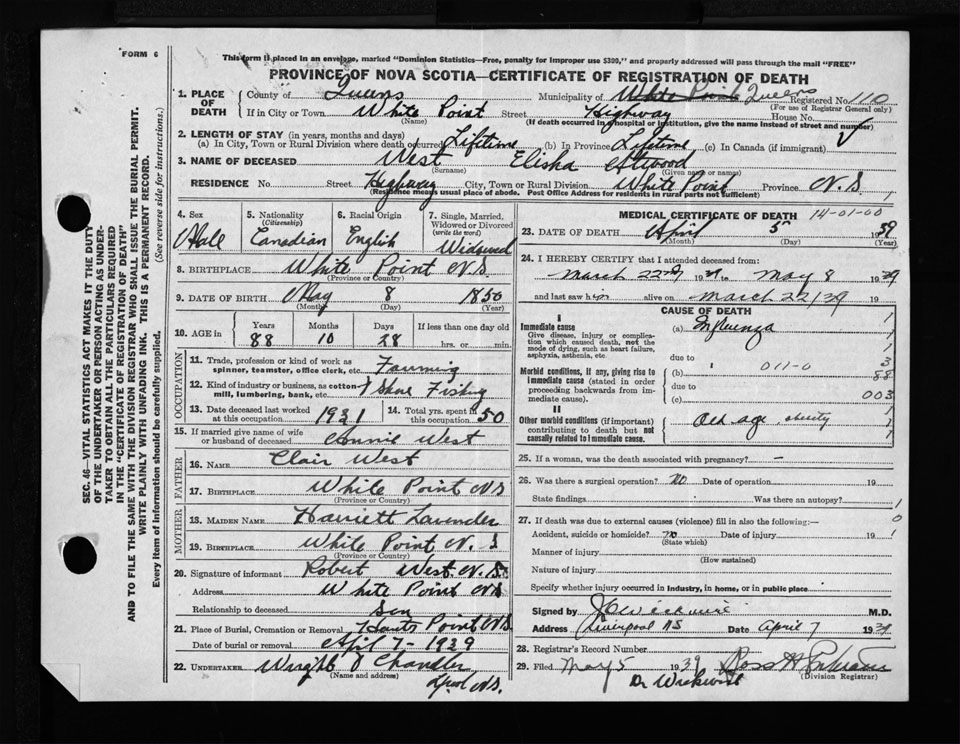 FORM 6
This form if placed in an envelope, marked "Dominion Statistics—Free, penalty for improper use $300," and properly addressed will pass through the mail "FREE"
PROVINCE OF NOVA SCOTIA—CERTIFICATE OF REGISTRATION OF DEATH
1. PLACE OF DEATH
County of Queens Municipality of White Point Queens Registered No. 110
(For use of Registrar General only)
If in City or Town White Point Street Highway House No.
(Name) (If death occurred in a hospital or institution, give the name instead of street and number)
2. LENGTH OF STAY (in years, months and days)
(a) In City, Town or Rural Division where death occurred Lifetime (b) In Province Lifetime (c) In Canada (if immigrant) √
3. NAME OF DECEASED West Elisha Attwood
(Surname) (Given name or names)
RESIDENCE No. Street Highway City, Town or Rural Division White Point Province N.S
(Residence means usual place of abode. Post Office Address for residents in rural parts not sufficient)
4. Sex Male
5. Nationality (Citizenship) Canadian
6. Racial Origin English
7. Single, Married, Widowed or Divorced (write the word) Widowed
8. BIRTHPLACE White Point N.S.
(Province or Country)
9. DATE OF BIRTH May 8 1850
(Month) (Day) (Year)
10. AGE in Years Months Days If less than one day old
88 10 28 hrs. or min.
OCCUPATION
11. Trade, profession or kind of work as spinner, teamster, office clerk, etc. Farming
12. Kind of industry or business, as cotton mill, lumbering, bank, etc. & Shore Fishing
13. Date deceased last worked at this occupation 1931
14. Total yrs. spent in this occupation 50
15. If married give name of wife or husband of deceased Annie West
FATHER
16. Name Clair West
17. Birthplace White Point NS
(Province or Country)
MOTHER
18. Maiden Name Harriett Lavender
19. Birthplace White Point N. S
(Province or Country)
20. Signature of informant Robert West N.S.
Address White Point NS
Relationship to deceased Son
21. Place of Burial, Cremation or Removal Hants Point NS
Date of burial or removal April 7 - 1929
22. UNDERTAKER Wright & Chandler
(Name and address)
Lpool NS.
MEDICAL CERTIFICATE OF DEATH 14-01-00
23. DATE OF DEATH April 5 1939
(Month) (Day) (Year)
24. I HEREBY CERTIFY that I attended deceased from:
March 22nd 1939 to May 8 1939
and last saw him alive on March 22/39 19
CAUSE OF DEATH
I
Immediate cause (a) Influenza
Give disease, injury or complication which caused death, not the mode of dying, such as heart failure, asphyxia, asthenia, etc.
due to
Morbid conditions, if any, giving rise to immediate cause (stated in order proceeding backwards from immediate cause).
(b) 011-0
due to
(c)
3
88
003
II
Other morbid conditions (if important) contributing to death but not causally related to immediate cause.
Old age, obesity
25. If a woman, was the death associated with pregnancy? —
26. Was there a surgical operation? No Date of operation 19
State findings Was there an autopsy?
27. If death was due to external causes (violence) fill in also the following:—
Accident, suicide or homicide? no Date of injury 19
(State which)
Manner of injury
(How sustained)
Nature of injury
Specify whether injury occurred in industry, in home, or in public place
Signed by J C Wickwire M.D.
Address Liverpool NS Date April 7 1939
28. Registrar's Record Number
29. Filed May 5 1939 Ross H
(Division Registrar)
Dr Wickwire
SEC. 46—VITAL STATISTICS ACT MAKES IT THE DUTY
OF THE UNDERTAKER OR PERSON ACTING AS UNDER-
TAKER TO OBTAIN ALL THE PARTICULARS REQUIRED
IN THE "CERTIFICATE OF REGISTRATION OF DEATH"
AND TO FILE THE SAME WITH THE DIVISION REGISTRAR WHO SHALL ISSUE THE BURIAL PERMIT.
WRITE PLAINLY WITH UNFADING INK. THIS IS A PERMANENT RECORD.
Every item of Information should be carefully supplied. (See reverse side for instructions.)